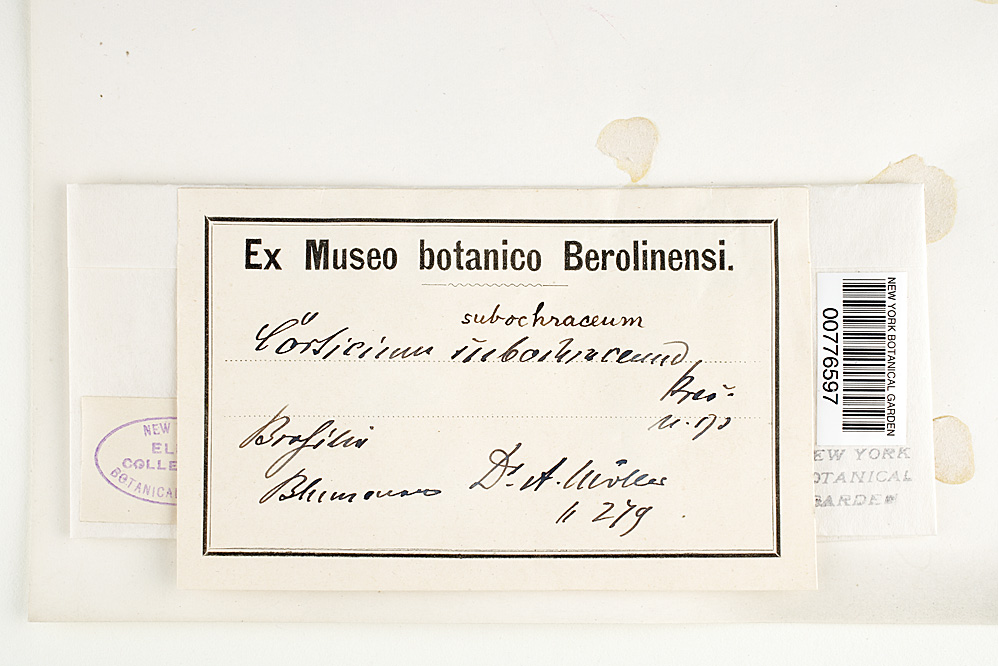 Ex Museo botanico Berolinensi.
subochraceum
Corticium subochraceum
Bres.
n. sp
Brasilia
Blumenau Dr. A. Möller
n 279
NEW YORK BOTANICAL GARDEN
00776597
NEW
EL
COLLE
BOTANICA
EW YORK
OTANICAL
GARDEN